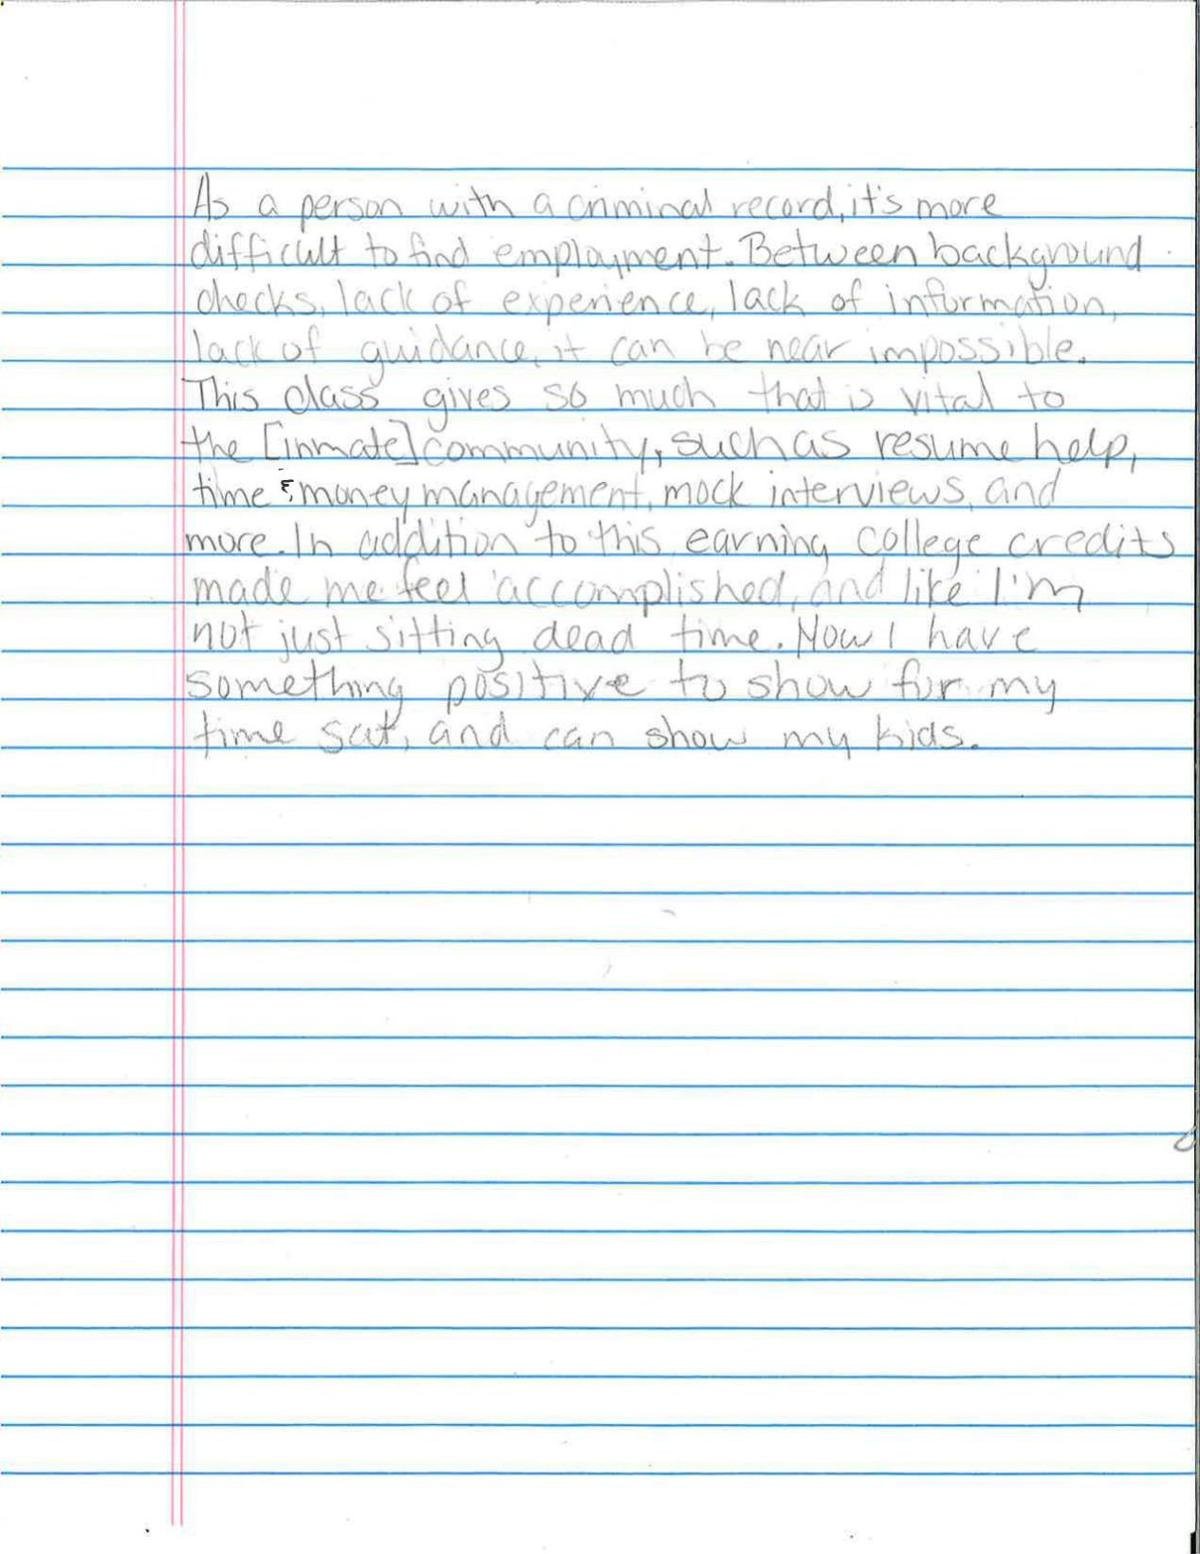 As a person with a criminal record, it's more
difficult to find employment. Between background
checks, lack of experience, lack of information,
lack of guidance, it can be near impossible.
This class gives so much that is vital to
the [inmate] community, such as resume help,
time & money management, mock interviews, and
more. In addition to this, earning college credits
made me feel accomplished, and like I'm
not just sitting dead time. Now I have
something positive to show for my
time sat, and can show my kids.